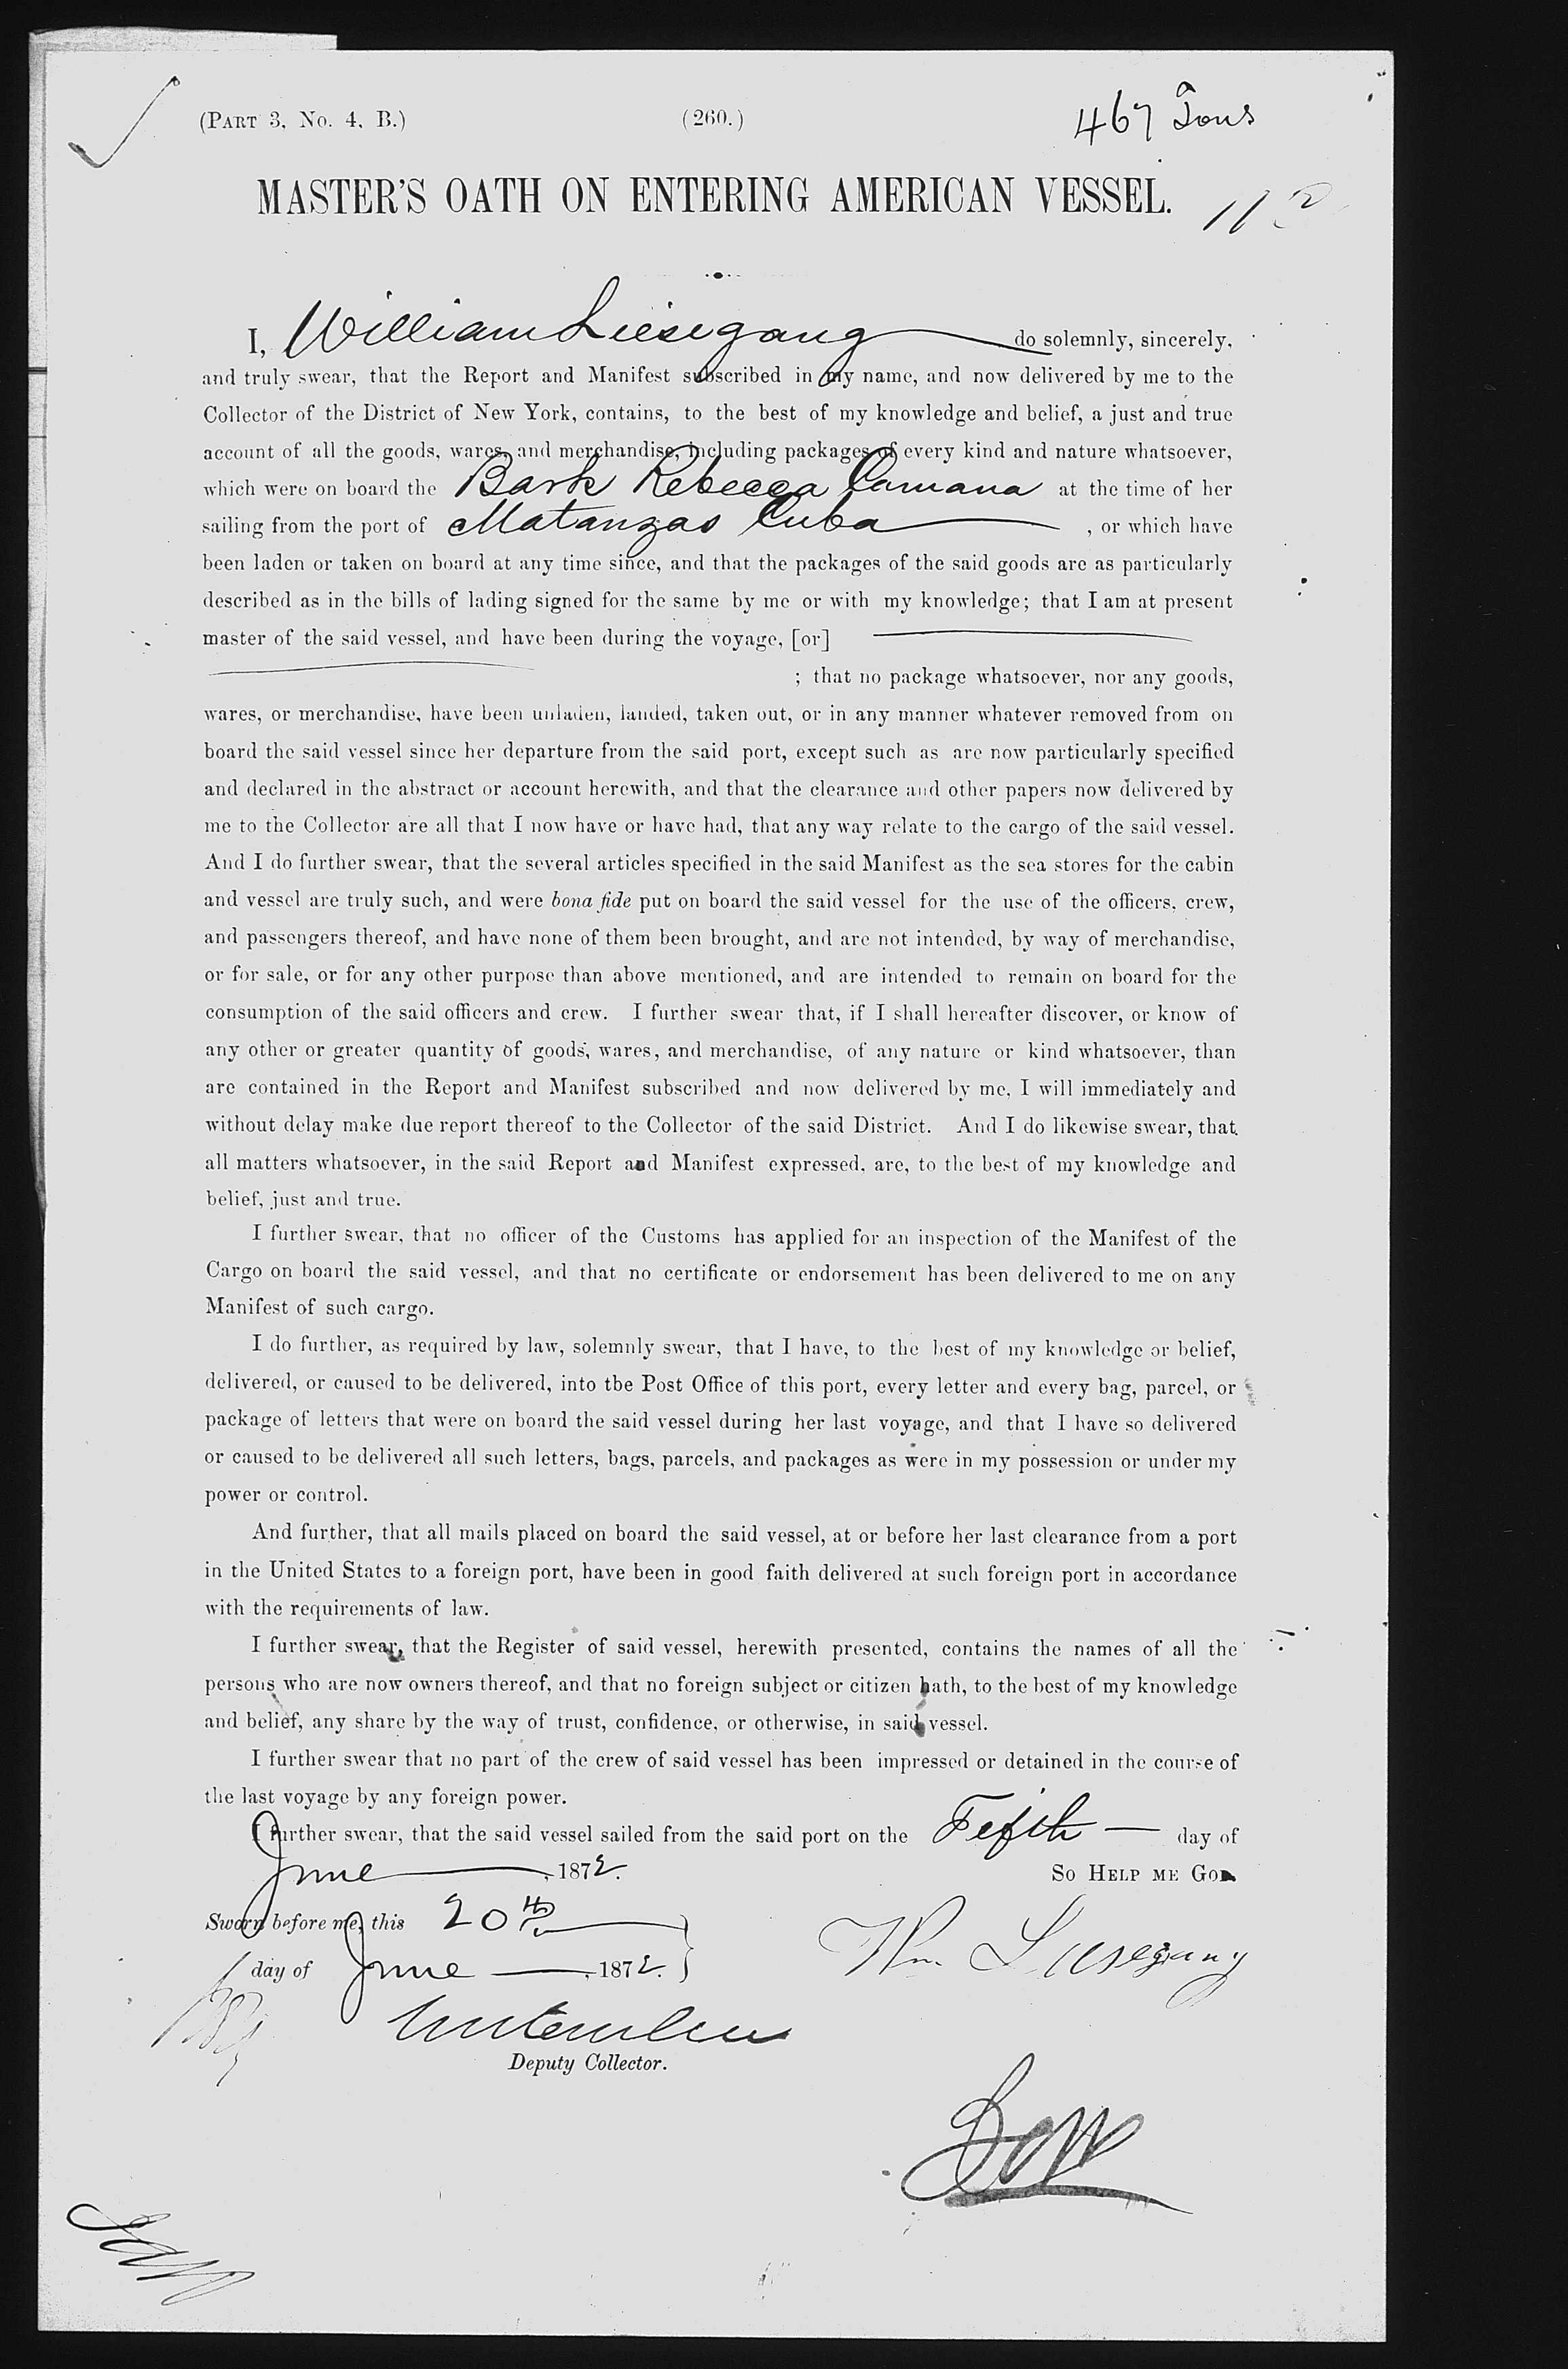 (PART 3, No. 4, B.)
(260.)
467 Tons
MASTER'S OATH ON ENTERING AMERICAN VESSEL.
I, William Liesegang do solemnly, sincerely,
and truly swear, that the Report and Manifest subscribed in my name, and now delivered by me to the
Collector of the District of New York, contains, to the best of my knowledge and belief, a just and true
account of all the goods, wares, and merchandise, including packages of every kind and nature whatsoever,
which were on board the Bark Rebecca Carnana at the time of her
sailing from the port of Matanzas Cuba , or which have
been laden or taken on board at any time since, and that the packages of the said goods are as particularly
described as in the bills of lading signed for the same by me or with my knowledge; that I am at present
master of the said vessel, and have been during the voyage, [or]
; that no package whatsoever, nor any goods,
wares, or merchandise, have been unladen, landed, taken out, or in any manner whatever removed from on
board the said vessel since her departure from the said port, except such as are now particularly specified
and declared in the abstract or account herewith, and that the clearance and other papers now delivered by
me to the Collector are all that I now have or have had, that any way relate to the cargo of the said vessel.
And I do further swear, that the several articles specified in the said Manifest as the sea stores for the cabin
and vessel are truly such, and were bona fide put on board the said vessel for the use of the officers, crew,
and passengers thereof, and have none of them been brought, and are not intended, by way of merchandise,
or for sale, or for any other purpose than above mentioned, and are intended to remain on board for the
consumption of the said officers and crew. I further swear that, if I shall hereafter discover, or know of
any other or greater quantity of goods, wares, and merchandise, of any nature or kind whatsoever, than
are contained in the Report and Manifest subscribed and now delivered by me, I will immediately and
without delay make due report thereof to the Collector of the said District. And I do likewise swear, that
all matters whatsoever, in the said Report and Manifest expressed, are, to the best of my knowledge and
belief, just and true.
I further swear, that no officer of the Customs has applied for an inspection of the Manifest of the
Cargo on board the said vessel, and that no certificate or endorsement has been delivered to me on any
Manifest of such cargo.
I do further, as required by law, solemnly swear, that I have, to the best of my knowledge or belief,
delivered, or caused to be delivered, into the Post Office of this port, every letter and every bag, parcel, or
package of letters that were on board the said vessel during her last voyage, and that I have so delivered
or caused to be delivered all such letters, bags, parcels, and packages as were in my possession or under my
power or control.
And further, that all mails placed on board the said vessel, at or before her last clearance from a port
in the United States to a foreign port, have been in good faith delivered at such foreign port in accordance
with the requirements of law.
I further swear, that the Register of said vessel, herewith presented, contains the names of all the
persons who are now owners thereof, and that no foreign subject or citizen hath, to the best of my knowledge
and belief, any share by the way of trust, confidence, or otherwise, in said vessel.
I further swear that no part of the crew of said vessel has been impressed or detained in the course of
the last voyage by any foreign power.
I further swear, that the said vessel sailed from the said port on the Fifth day of
June , 1872.
SO HELP ME GOD.
Sworn before me, this 20th
day of June , 1872.
Wm Liesegang
Deputy Collector.